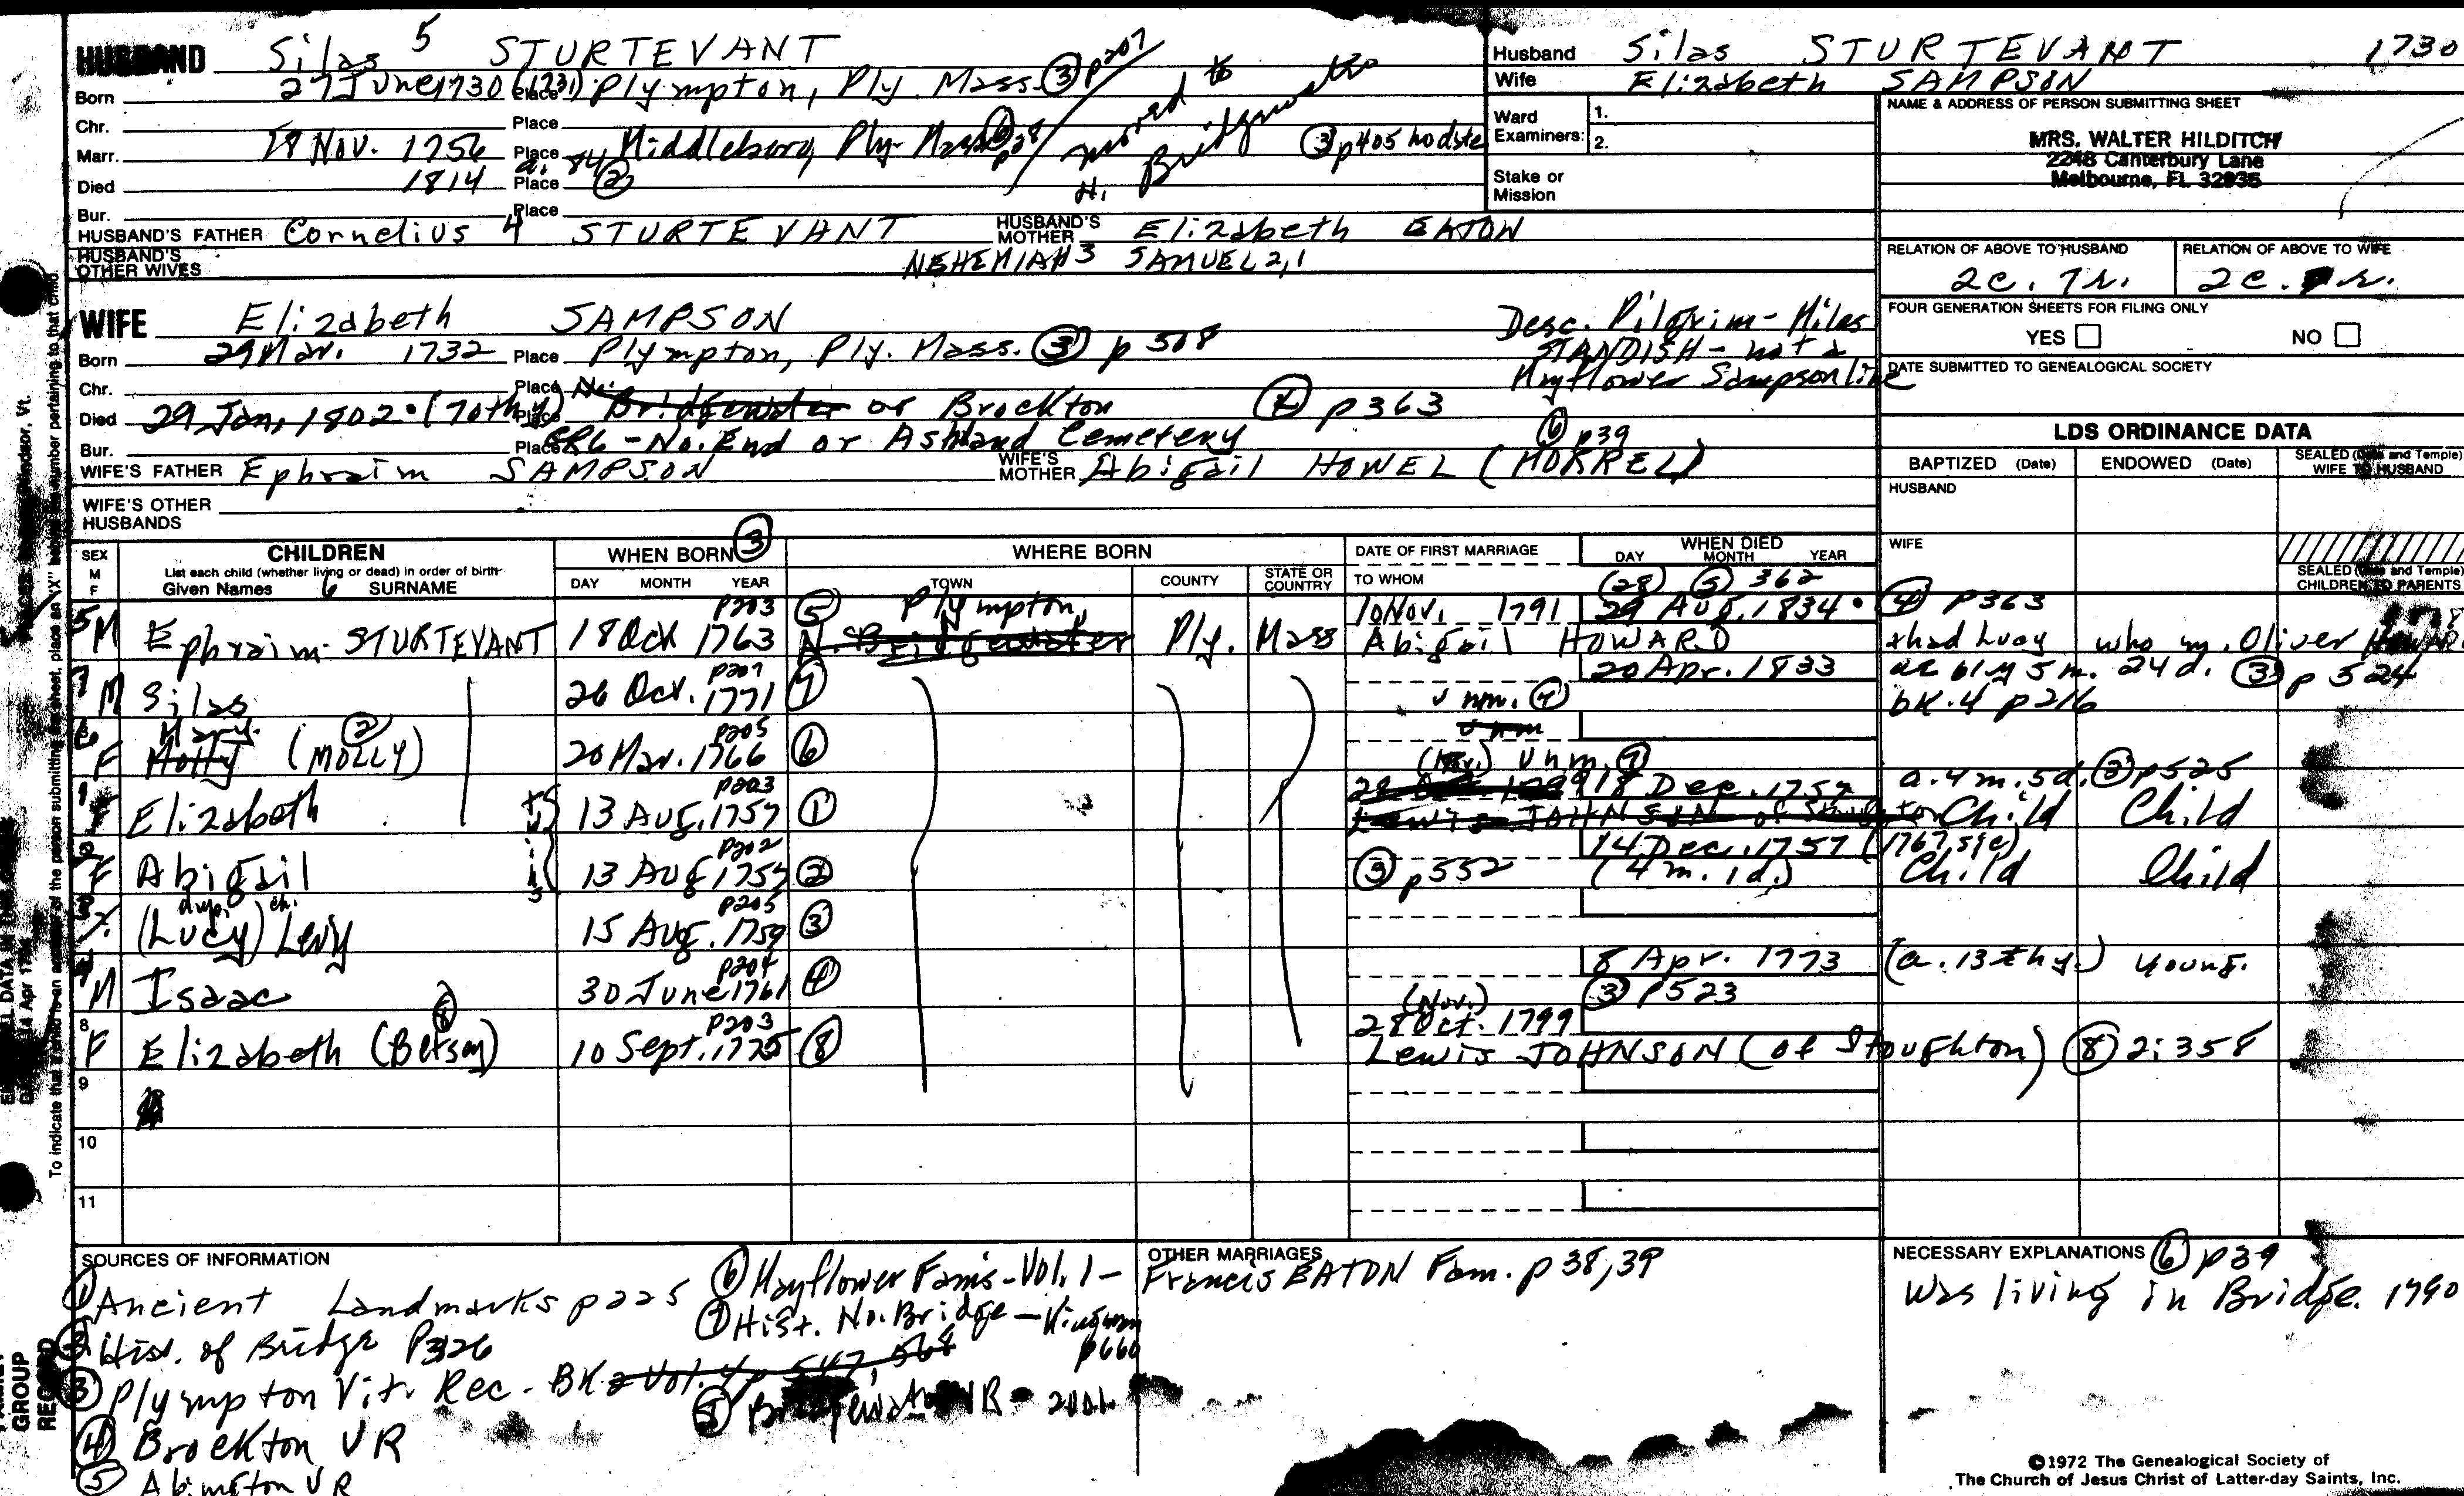 HUSBAND Silas 5 STURTEVANT
Born 27 June 1730 (1731) Place Plympton, Ply. Mass. (3) p207
Chr. Place
Marr. 18 Nov. 1756 Place Middleboro, Ply. Mass (6) p38 (3) p405 no date
Died 1814 a. 84 Place (2)
moved to N. Bridgewater
Bur. Place
HUSBAND'S FATHER Cornelius 4 STURTEVANT HUSBAND'S MOTHER Elizabeth EATON
HUSBAND'S OTHER WIVES NEHEMIAH 3 SAMUEL 2,1
WIFE Elizabeth SAMPSON
Born 29 Mar. 1732 Place Plympton, Ply. Mass. (3) p 508
Desc. Pilgrim - Miles
STANDISH - not a
Mayflower Sampson line
Chr. Place
Died 29 Jan, 1802 (70th y) Place No. Bridgewater or Brockton (4) p363
Bur. Place GR6 - No. End or Ashland Cemetery (6) p39
WIFE'S FATHER Ephraim SAMPSON WIFE'S MOTHER Abigail HOWEL (HORREL)
WIFE'S OTHER HUSBANDS
Husband Silas STURTEVANT 1730
Wife Elizabeth SAMPSON
Ward 1.
Examiners: 2.
Stake or Mission
NAME & ADDRESS OF PERSON SUBMITTING SHEET
MRS. WALTER HILDITCH
2248 Canterbury Lane
Melbourne, FL 32935
RELATION OF ABOVE TO HUSBAND RELATION OF ABOVE TO WIFE
2c. 7r. 2c. r.
FOUR GENERATION SHEETS FOR FILING ONLY
YES NO
DATE SUBMITTED TO GENEALOGICAL SOCIETY
LDS ORDINANCE DATA
BAPTIZED (Date) ENDOWED (Date) SEALED (Date and Temple) WIFE TO HUSBAND
HUSBAND
WIFE
SEALED (Date and Temple) CHILDREN TO PARENTS
SEX M F
CHILDREN
List each child (whether living or dead) in order of birth
Given Names 6 SURNAME
WHEN BORN (3)
DAY MONTH YEAR
WHERE BORN
TOWN COUNTY STATE OR COUNTRY
DATE OF FIRST MARRIAGE
TO WHOM
WHEN DIED
DAY MONTH YEAR
(28) (3) 362
5 M Ephraim STURTEVANT 18 Oct 1763 p203 (5) Plympton, N. Bridgewater Ply. Mass 10 Nov. 1791 Abigail HOWARD 29 Aug. 1834 (4) P363
thad Lucy who m. Oliver HOWARD
7 M Silas 26 Oct. 1771 p207 (7) unm. (7) 20 Apr. 1833 ae 61 y 5 m. 24 d. (3) p 524
bk. 4 p216
6 F Mary Molly (MOLLY) (2) 20 Mar. 1766 p205 (6) unm
1 F Elizabeth 13 Aug. 1757 p203 (1) (Nov.) unm. (7) 28 Oct. 1799 18 Dec. 1757 a. 4 m. 5d. (3) p525
Lewis JOHNSON of Stoughton Child Child
2 F Abigail 13 Aug 1757 p202 (2) (3) p552 14 Dec. 1757 (1767, sic) (4 m. 1d.) Child Child
twins
3 (Lucy) Levy 15 Aug. 1759 p205 (3)
4 M Isaac 30 June 1761 p204 (4) 8 Apr. 1773 (a. 13th y.) young.
(3) P523
8 F Elizabeth (Betsey) (8) 10 Sept. 1775 p203 (8) (Nov.) 28 Oct. 1799
Lewis JOHNSON (of Stoughton) (8) 2:358
9
10
11
SOURCES OF INFORMATION
(1) Ancient Landmarks p225
(2) Hist. of Bridge P326
(3) Plympton Vit. Rec. - BK 2 Vol. 4 p 547, 568
(4) Brockton VR
(5) Abington VR
(6) Mayflower Fams - Vol. 1 - Francis EATON Fam. p 38, 39
(7) Hist. No. Bridge - Kingman
p660
OTHER MARRIAGES
NECESSARY EXPLANATIONS (6) p39
Was living in Bridge. 1790
To indicate that a child is an ancestor of the person submitting the sheet, place an "X" behind the number pertaining to that child.
FAMILY GROUP RECORD
©1972 The Genealogical Society of
The Church of Jesus Christ of Latter-day Saints, Inc.